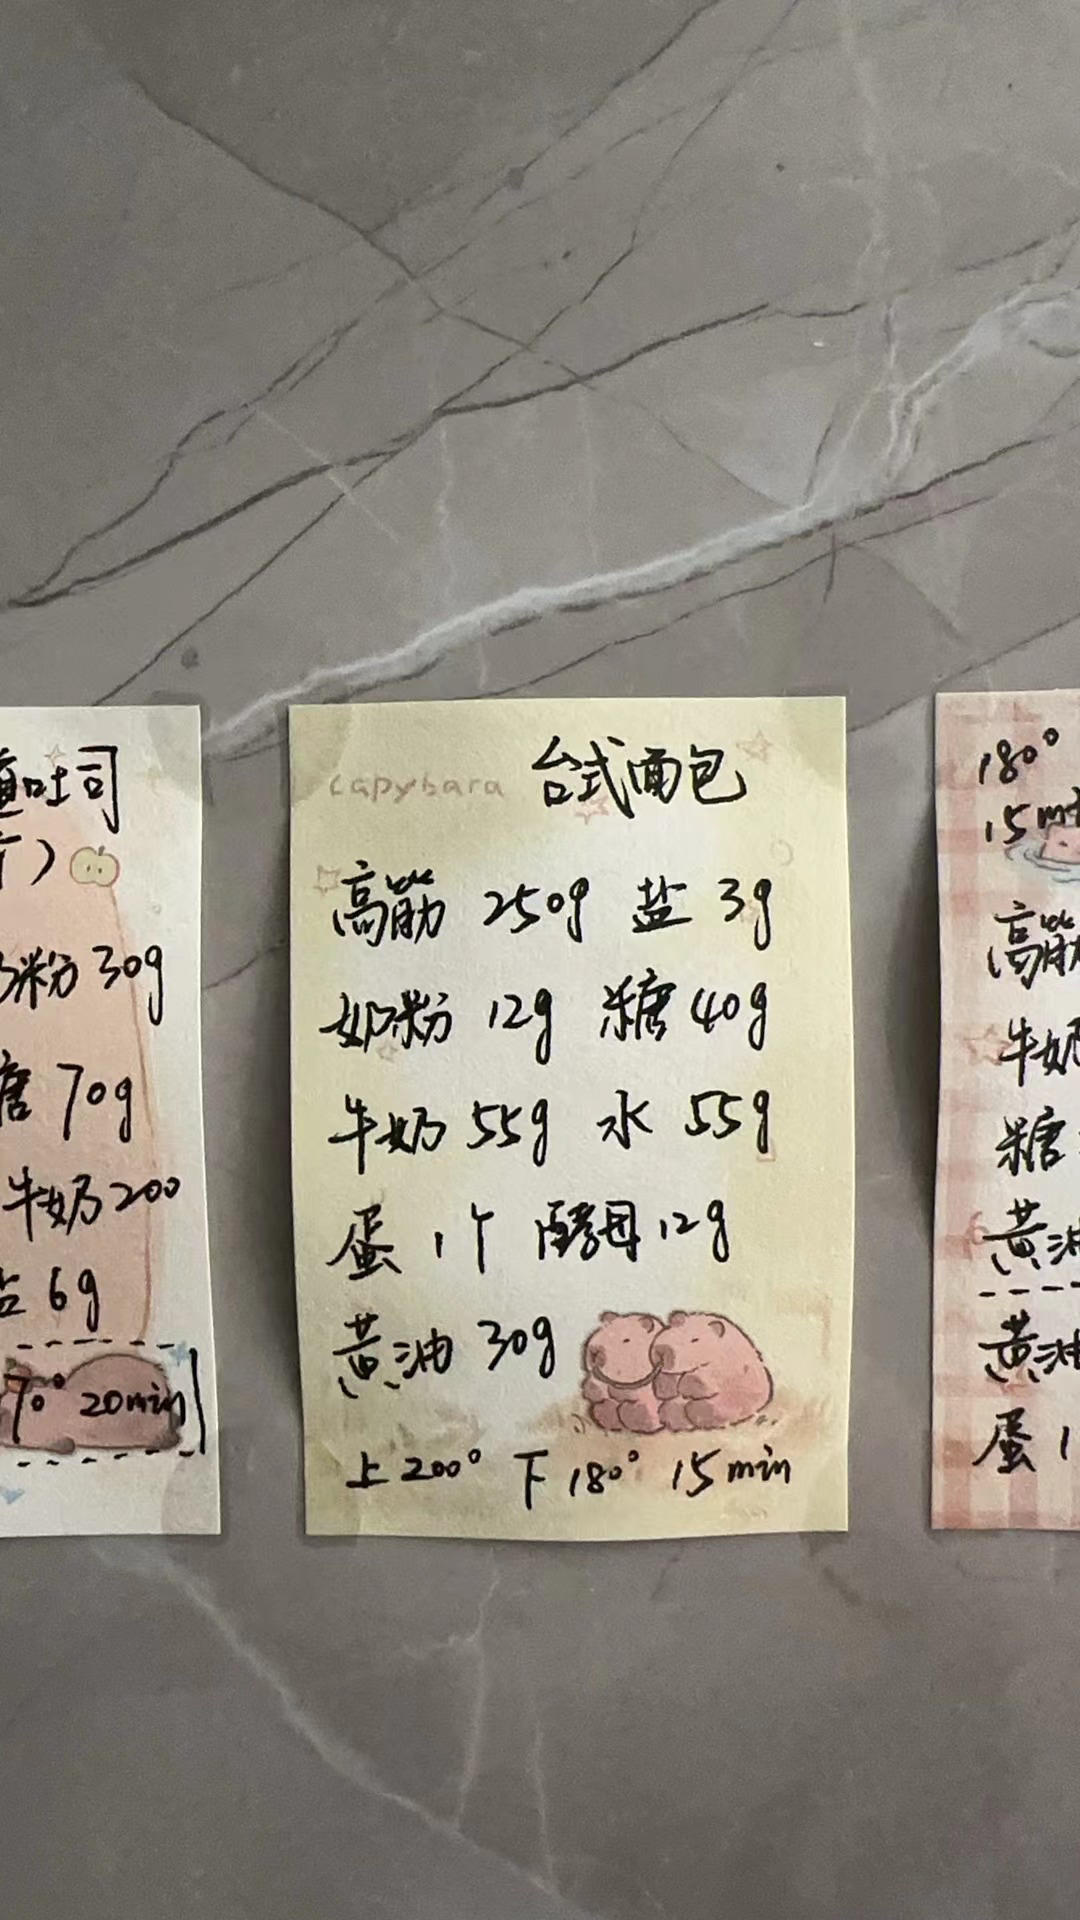 吐司
）
粉 30g
糖 70g
牛奶 200
盐 6g
70° 20min
capybara 台式面包
高筋 250g 盐 3g
奶粉 12g 糖 40g
牛奶 55g 水 55g
蛋 1个 酵母 12g
黄油 30g
上200° 下180° 15min
180°
15m
高筋
牛奶
糖
黄油
黄油
蛋 1